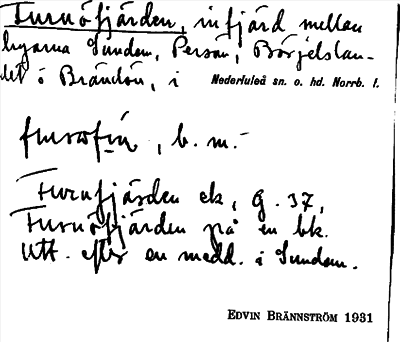 Furuöfjärden, infjärd mellan
byarna Sundom, Persön, Börjelslan-
det o Brändön, i Nederluleå sn. o. hd. Norrb. l.
, b. m.-
Furufjärden ek, G. 37,
Furuöfjärden på en bk.
Utt. efter en medd. i Sundom.
EDVIN BRÄNNSTRÖM 1931